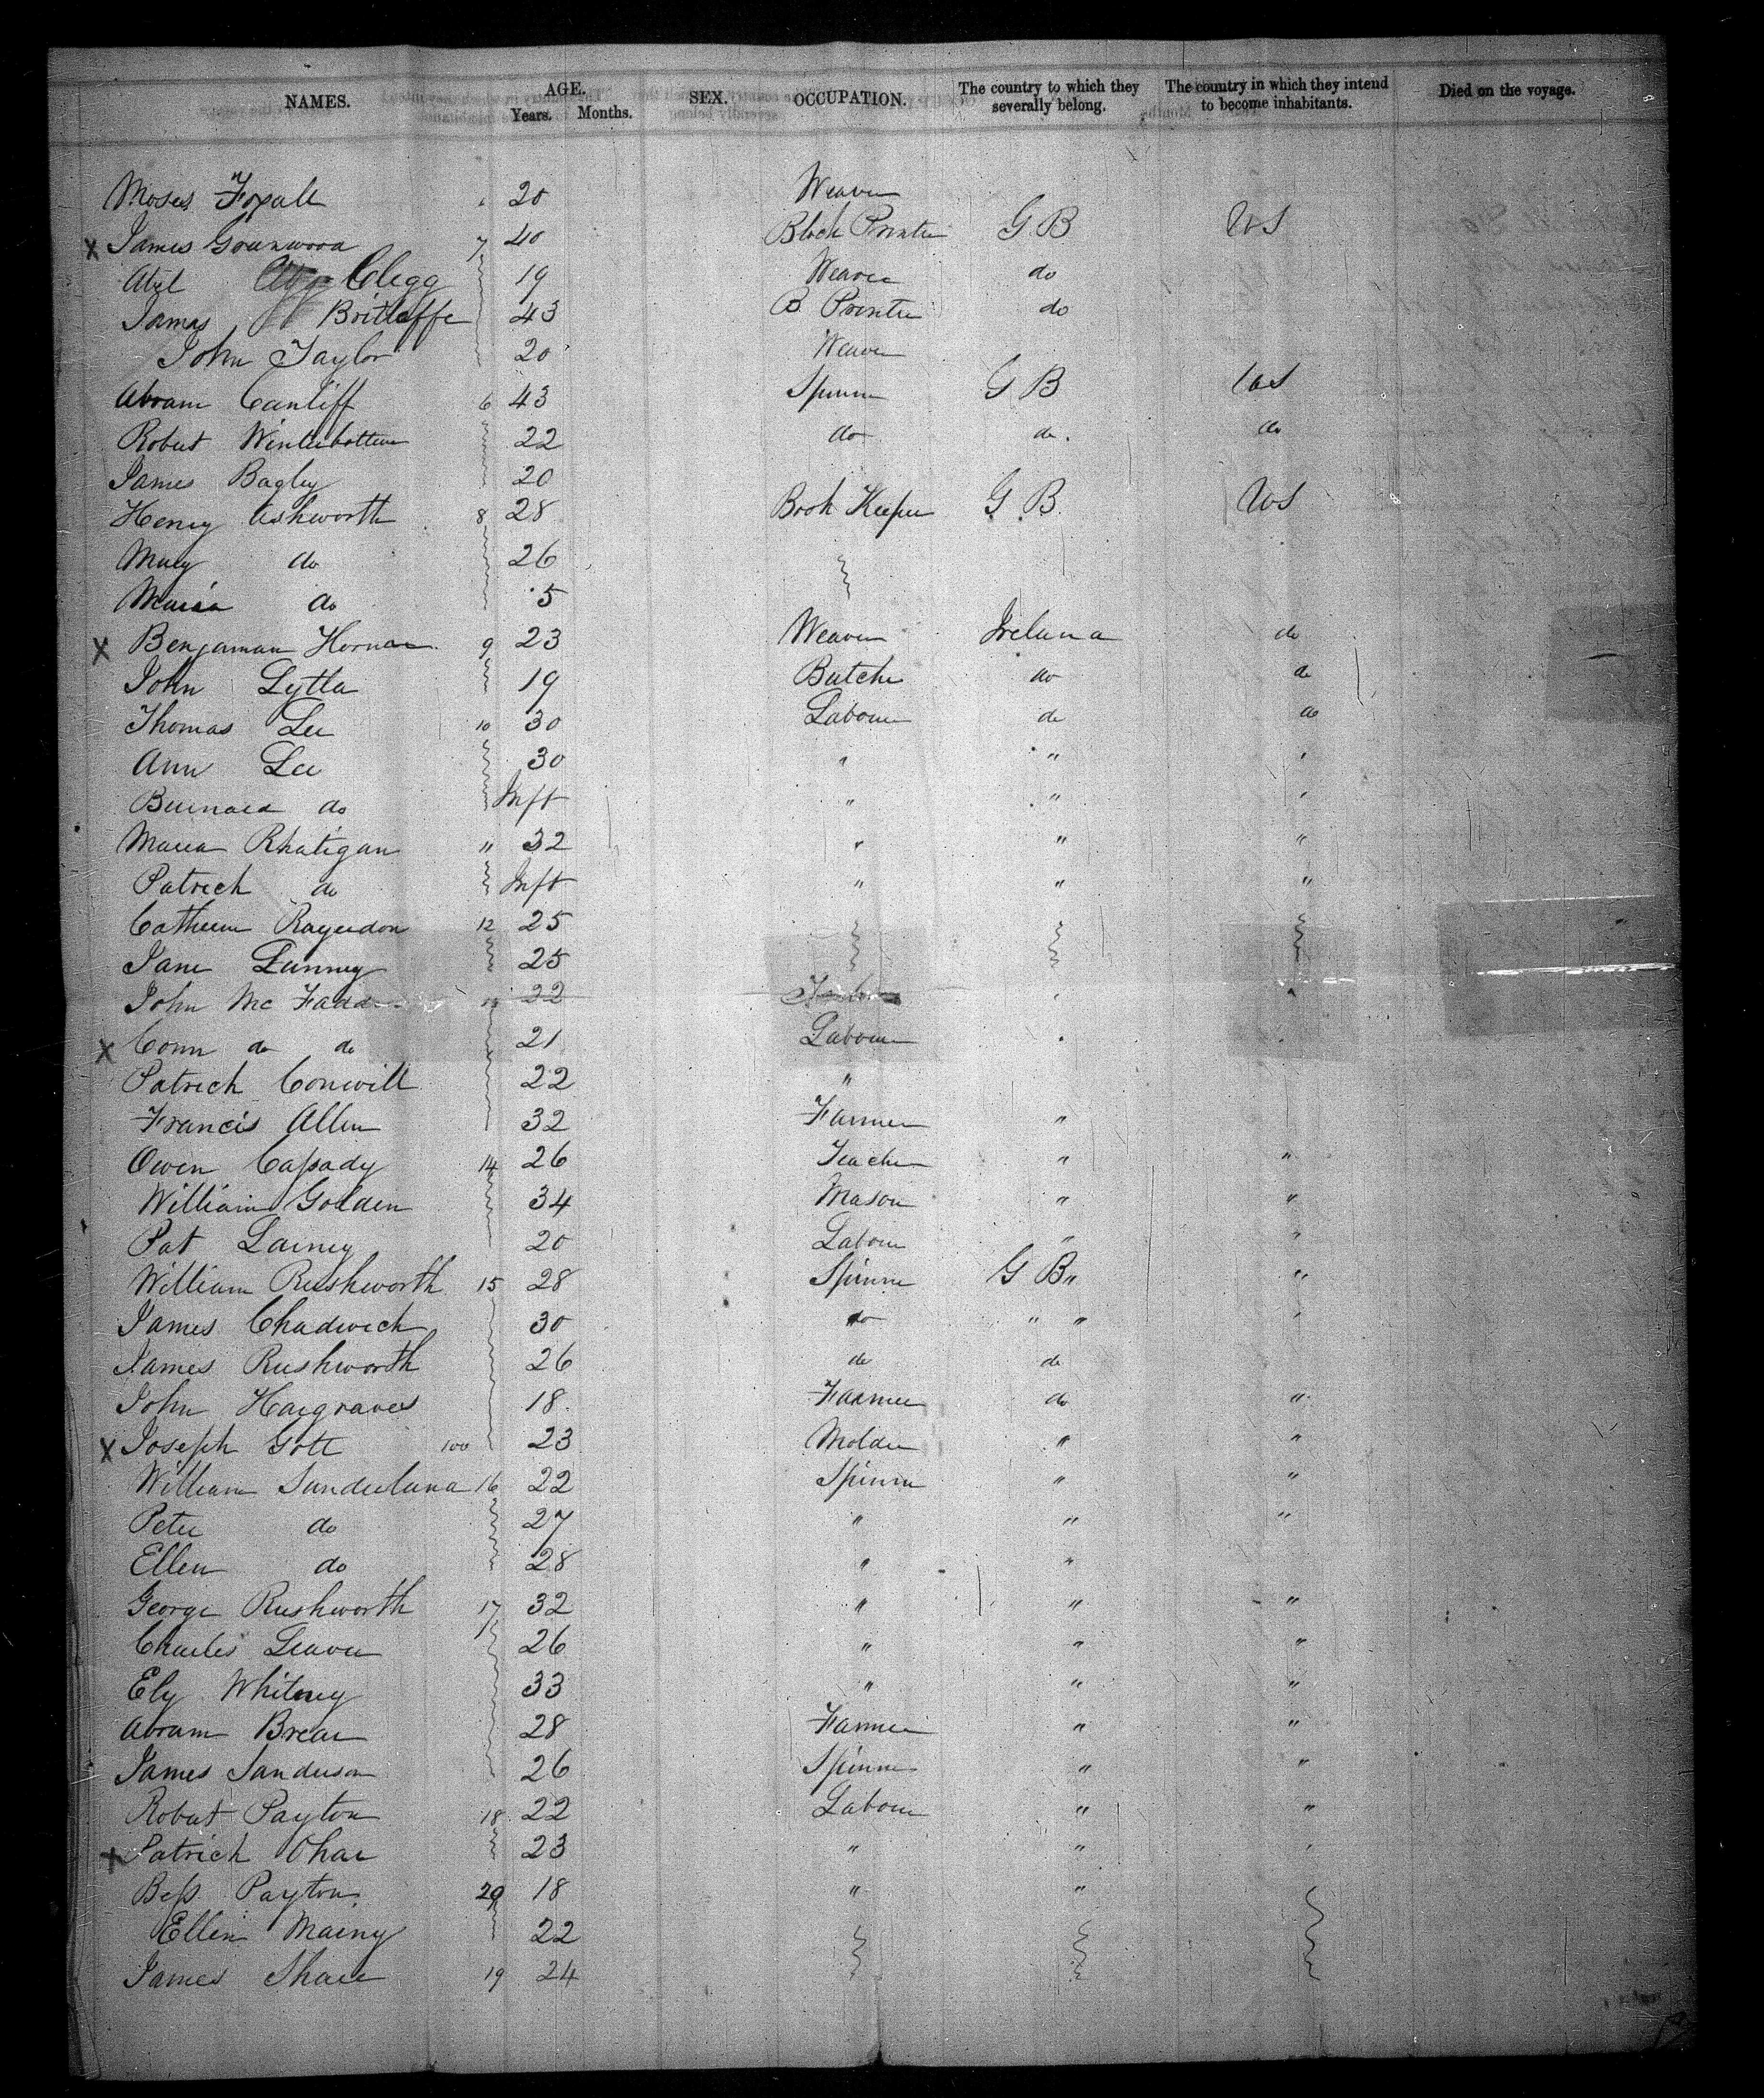 NAMES. AGE. Years. Months. SEX. OCCUPATION. The country to which they severally belong. The country in which they intend to become inhabitants. Died on the voyage.
Moses Foxall 20 Weaver
X James Greenwood 7 40 Block Printer G B US
Abel Clegg 19 Weaver do
James Britleffe 43 B. Printer do
John Taylor 20 Weaver
Abram Canliff 6 43 Spinner G B US
Robert Winterbottom 22 do do. do
James Bagley 20
Henry Ashworth 8 28 Book Keeper G B. US
Mary do 26
Maria do 5
X Benjaman Horner 9 23 Weaver Ireland do
John Lytla 19 Butcher do do
Thomas Lee 10 30 Labourer do do
Ann Lee 30 " " "
Bernard do Inft " " "
Maria Rhatigan 11 32 " " "
Patrick do Inft " " "
Catherine 12 25
Jane Lunney 25
John Mc Fadd 13 22
X Conn do do 21 Labourer
Patrick Conwill 22 "
Francis Allen 32 Farmer "
Owen Cassady 14 26 Teacher " "
William Golden 34 Mason " "
Pat Lainey 20 Labour " "
William Rushworth 15 28 Spinner G B " "
James Chadwick 30 do " " "
James Rushworth 26 do do
John Hargraves 18 Farmer do "
X Joseph Gott 100 23 Molder " "
William Sunderland 16 22 Spinner " "
Peter do 27 " " "
Ellen do 28 " "
George Rushworth 17 32 " " "
Charles Leaver 26 " " "
Ely Whitney 33 " " "
Abram Brear 28 Farmer " "
James Sanderson 26 Spinner " "
Robert Payton 18 22 Labour " "
X Patrick Ohar 23 " " "
Bess Payton 20 18 " "
Ellen Mainy 22
James Share 19 24